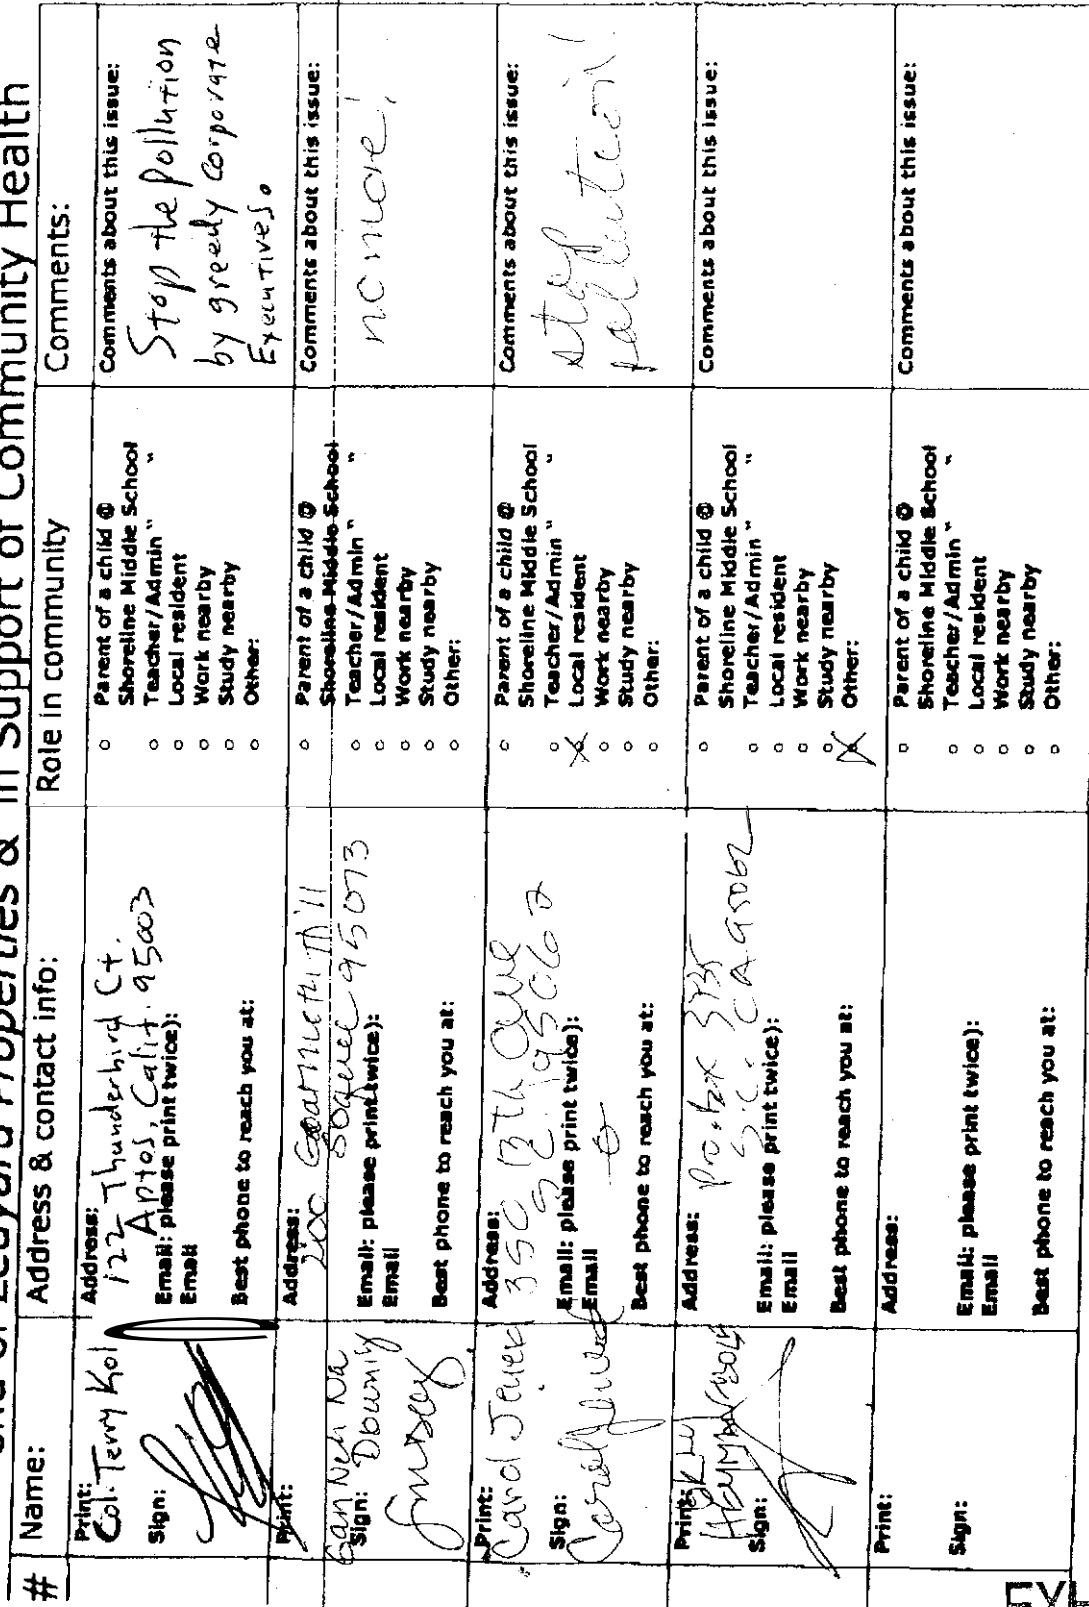 Ledyard Properties & in Support of Community Health
# Name: Address & contact info: Role in community Comments:
Print:
Col. Terry Kol
Sign:
Address:
122 Thunderbird Ct.
Aptos, Calif. 95003
Email: please print twice):
Email
Best phone to reach you at:
Parent of a child @
Shoreline Middle School
Teacher/Admin " "
Local resident
Work nearby
Study nearby
Other:
Comments about this issue:
Stop the Pollution
by greedy Corporate
Executives.
Print:
Sign:
Address:
200
Soquel 95073
Email: please print twice):
Email
Best phone to reach you at:
Parent of a child @
Shoreline Middle School
Teacher/Admin " "
Local resident
Work nearby
Study nearby
Other:
Comments about this issue:
no more!
Print:
Sign:
Address:
350 13th Ave
95062
Email: please print twice):
Email
Best phone to reach you at:
Parent of a child @
Shoreline Middle School
Teacher/Admin " "
Local resident
Work nearby
Study nearby
Other:
Comments about this issue:
stop
pollution!
Print:
Sign:
Address:
P.O. Box
S.C. CA 95062
Email: please print twice):
Email
Best phone to reach you at:
Parent of a child @
Shoreline Middle School
Teacher/Admin " "
Local resident
Work nearby
Study nearby
Other:
Comments about this issue:
Print:
Sign:
Address:
Email: please print twice):
Email
Best phone to reach you at:
Parent of a child @
Shoreline Middle School
Teacher/Admin " "
Local resident
Work nearby
Study nearby
Other:
Comments about this issue: